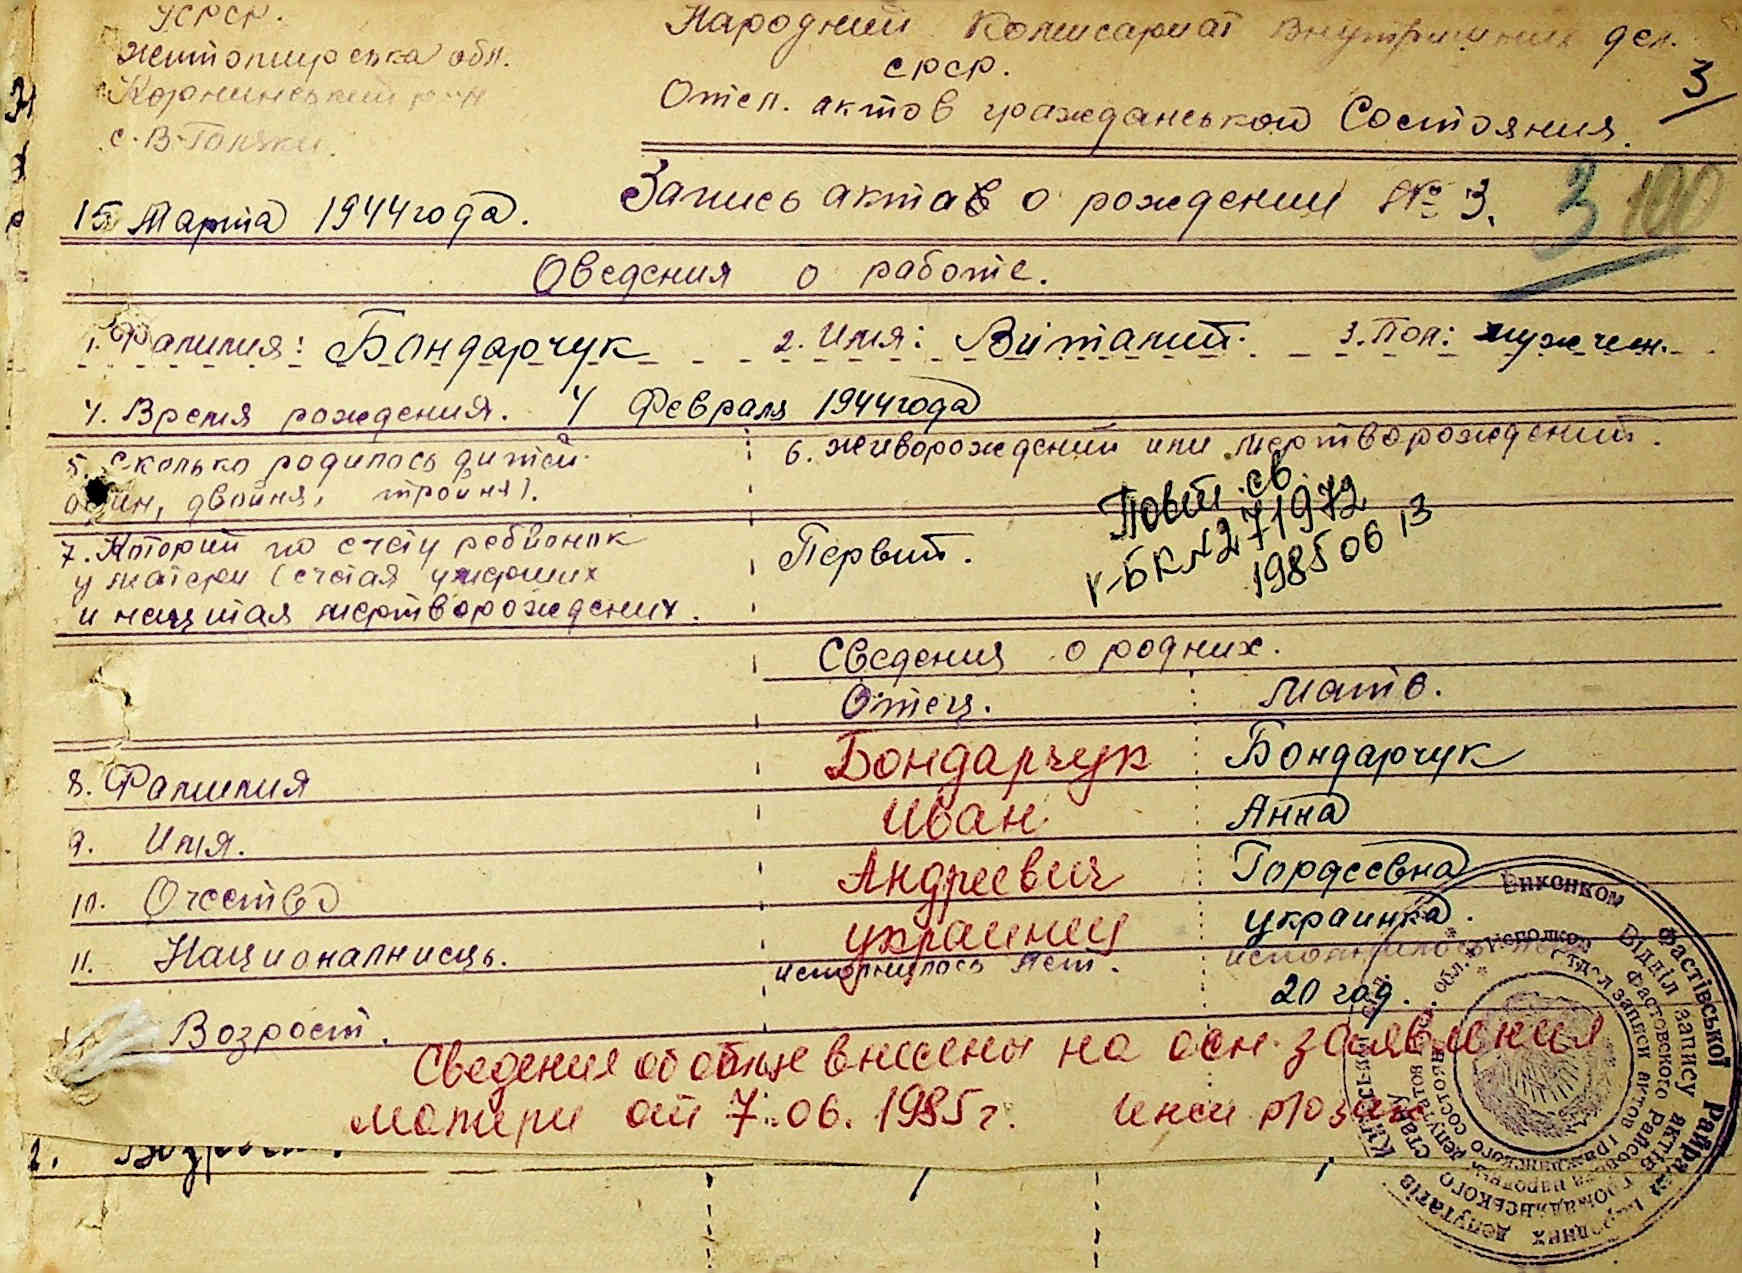 УСРСР.
Житомирська обл.
Корнинський р-н
с. В-Гапяки.
Народний Комисариат Внутрішних дел.
СРСР.
3
Отдел. актов гражданського Состояния.
15 Марта 1944 года.
Запись актав о рождении № 3.
3 100
Сведения о работе.
1. Фамилия: Бондарчук 2. Имя: Виталий. 3. Пол: мужчин.
4. Время рождения. 4 Февраля 1944 года
5. Сколько родилось дитей
один, двойня, тройня).
6. живорождений или мертворождений.
7. Которий по счету ребйонок
у матери (счетая умерших
и нещитая мертворождених.
Первий.
Повт. св.
V-БК № 271972
1985 06 13
Сведения о родних.
Отец. Мать.
8. Фамилия Бондарчук Бондарчук
9. Имя. Иван Анна
10. Очество Андреевич Гордеевна
11. Националнисць. украинец украинка.
исполнилось лет. исполнилось
Возрост. 20 год.
Сведения об отце внесены на осн. заявления
матери от 7.06.1985 г. инсп
2. Возрост.
Виконком Фастівської Районної Ради народних депутатів Київської обл.
Відділ запису актів громадянського стану
Исполком Фастовского райсовета народных депутатов
отдел записи актов гражданского состояния